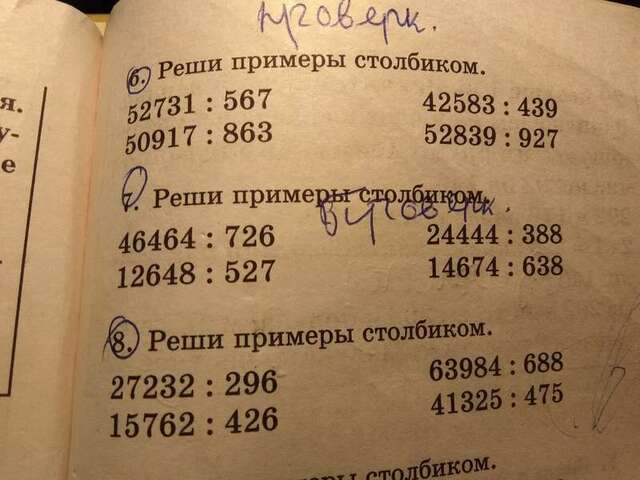 проверк.
6. Реши примеры столбиком.
52731 : 567 42583 : 439
50917 : 863 52839 : 927
я.
у-
е
7. Реши примеры столбиком.
46464 : 726 24444 : 388
12648 : 527 14674 : 638
8. Реши примеры столбиком.
27232 : 296 63984 : 688
15762 : 426 41325 : 475
меры столбиком.